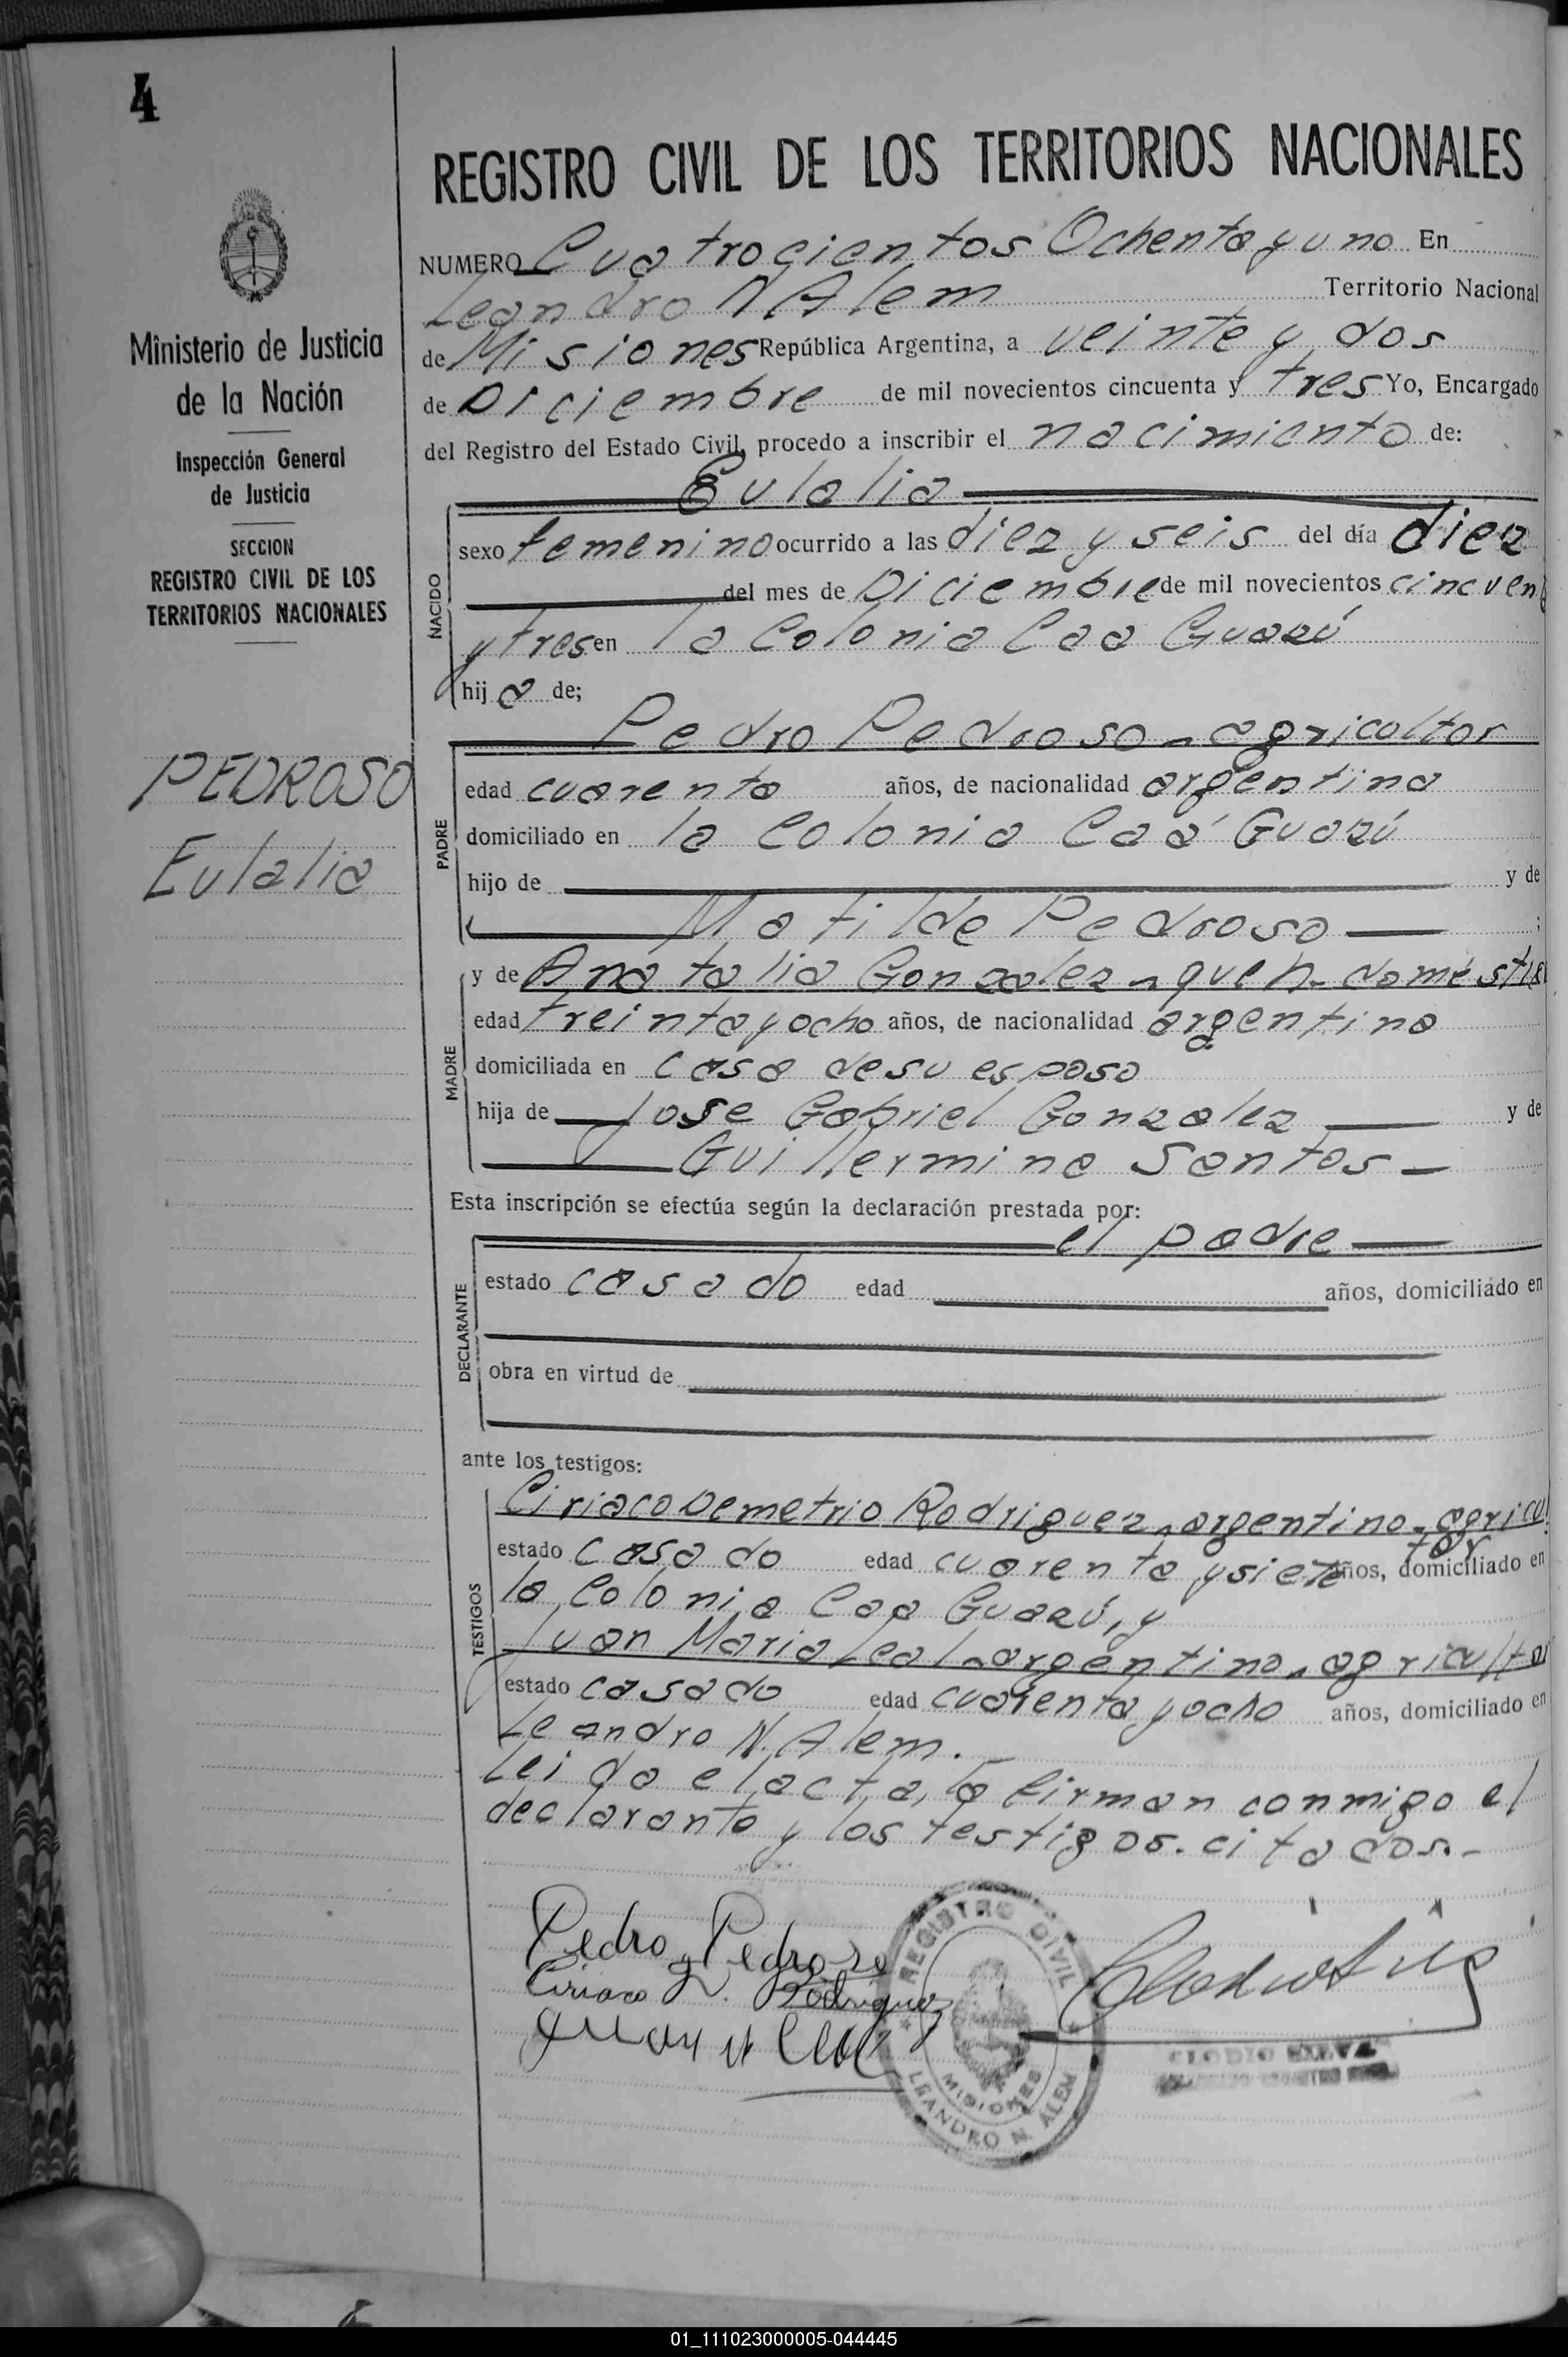 4
REGISTRO CIVIL DE LOS TERRITORIOS NACIONALES
NUMERO Cuatrocientos Ochenta y uno En
Leandro N Alem Territorio Nacional
de Misiones República Argentina, a veinte y dos
de Diciembre de mil novecientos cincuenta y tres Yo, Encargado
del Registro del Estado Civil, procedo a inscribir el nacimiento de:
Eulalia
NACIDO
sexo femenino ocurrido a las diez y seis del día diez
del mes de Diciembre de mil novecientos cincuen
y tres en la Colonia Caa Guazú
hija de;
Pedro Pedroso - agricultor
PADRE
edad cuarenta años, de nacionalidad argentina
domiciliado en la Colonia Caá Guazú
hijo de y de
Matilde Pedroso ;
MADRE
y de Anatalia Gonzalez - queh. domésti
edad treinta y ocho años, de nacionalidad argentina
domiciliada en casa de su esposo
hija de Jose Gabriel Gonzalez y de
Guillermina Santos
Esta inscripción se efectúa según la declaración prestada por:
el padre
DECLARANTE
estado casado edad años, domiciliado en
obra en virtud de
ante los testigos:
TESTIGOS
Ciriaco Demetrio Rodriguez - argentino - agricul
tor
estado casado edad cuarenta y siete años, domiciliado en
la Colonia Caa Guazú, y
Juan Maria Leal - argentino - agricultor
estado casado edad cuarenta y ocho años, domiciliado en
Leandro N. Alem.-
Leida el acta, la firman conmigo el
declarante y los testigos. citados.-
Pedro Pedroso
Ciriaco D. Rodriguez
REGISTRO CIVIL
MISIONES
LEANDRO N. ALEM
CLODIO SILVA
Ministerio de Justicia
de la Nación
Inspección General
de Justicia
SECCION
REGISTRO CIVIL DE LOS
TERRITORIOS NACIONALES
PEDROSO
Eulalia
01_111023000005-044445